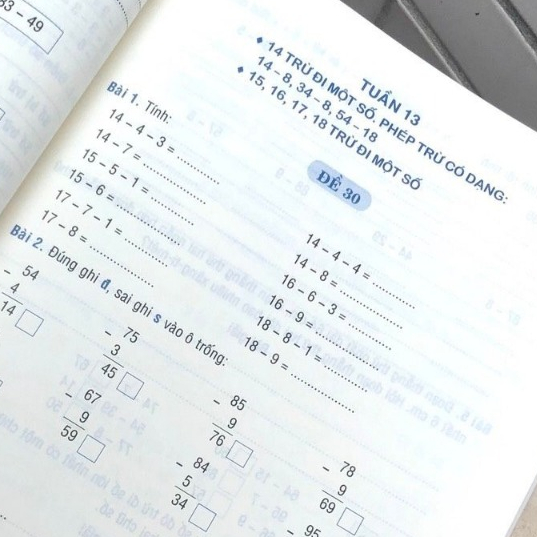 33 - 49
TUẦN 13
14 TRỪ ĐI MỘT SỐ. PHÉP TRỪ CÓ DẠNG:
14 - 8, 34 - 8, 54 - 18
15, 16, 17, 18 TRỪ ĐI MỘT SỐ
ĐỀ 30
Bài 1. Tính:
14 - 4 - 3 = ............
14 - 7 = ............
15 - 5 - 1 = ............
15 - 6 = ............
17 - 7 - 1 = ............
17 - 8 = ............
14 - 4 - 4 = ............
14 - 8 = ............
16 - 6 - 3 = ............
16 - 9 = ............
18 - 8 - 1 = ............
18 - 9 = ............
Bài 2. Đúng ghi đ, sai ghi s vào ô trống:
- 54
4
14
- 75
3
45
- 85
9
76
- 78
9
69
- 67
9
59
- 84
5
34
- 95